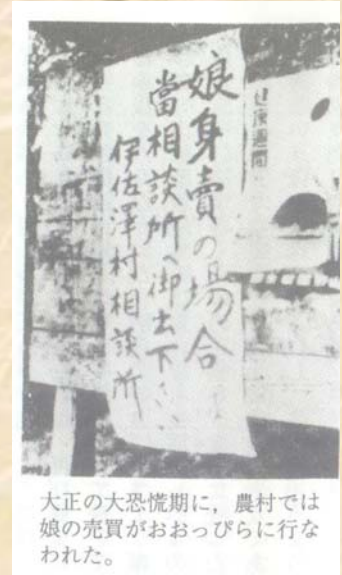 娘身賣の場合は
當相談所へ御出下さい
伊佐澤村相談所
健康週間
大正の大恐慌期に，農村では
娘の売買がおおっぴらに行な
われた。